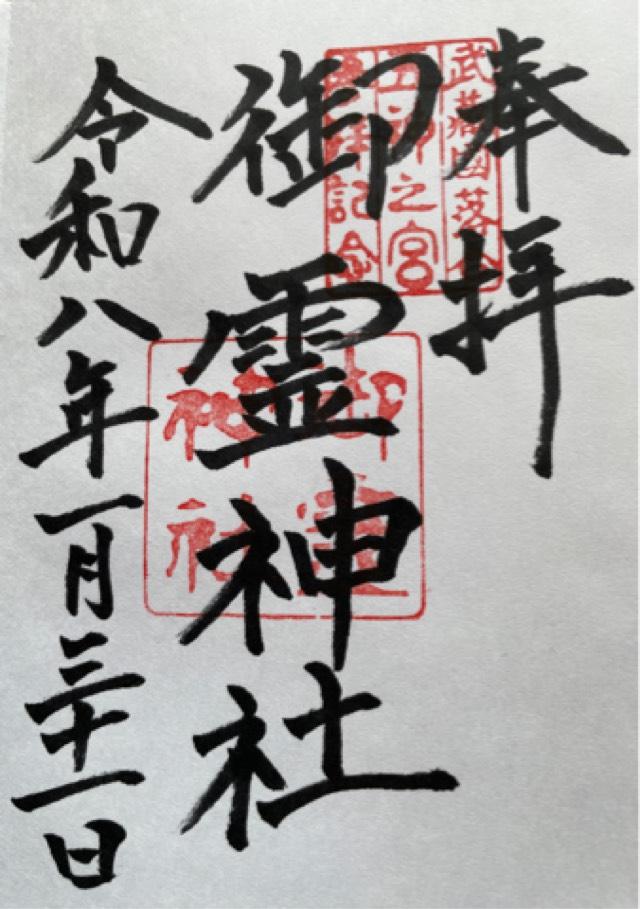 奉拝
武蔵國落合
之宮
記念
御霊神社
御霊
神社
令和八年一月三十一日